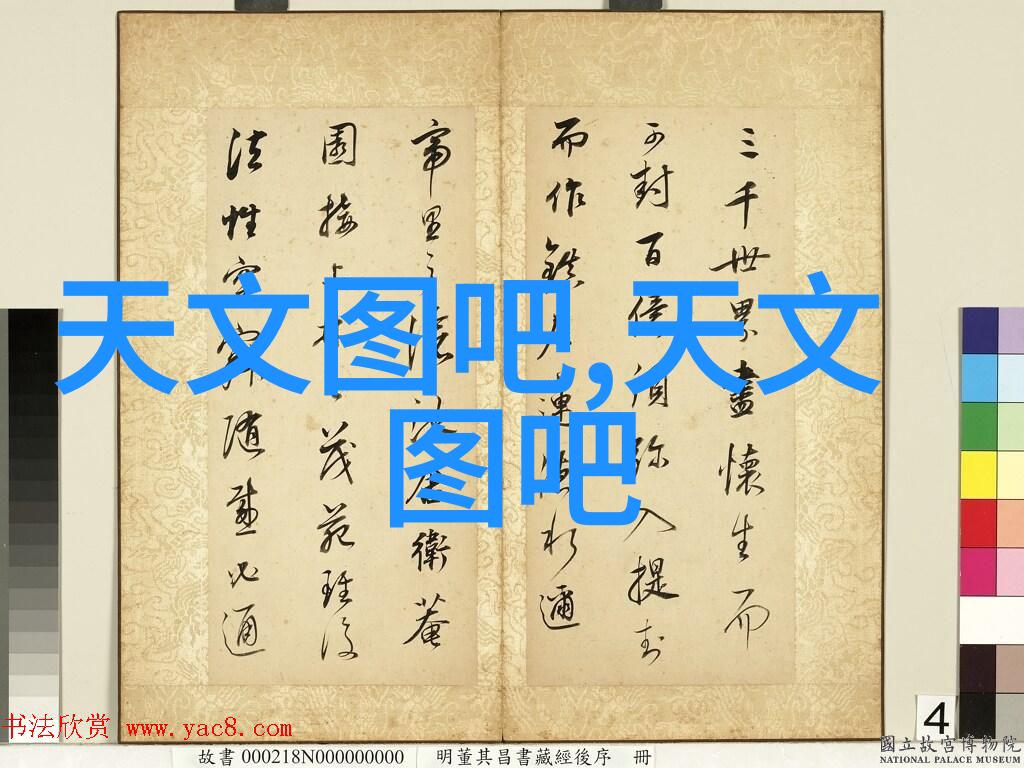 天文图吧,天文
图吧
三千世界盡懷生而
可封百億須彌入提封
而作鎮
邇
里之
衛菴
園接
茂苑
法性空
隨感必通
书法欣赏 www.yac8.com
故書 000218N000000000
明董其昌書藏經後序 冊
4
國立故宮博物院
NATIONAL PALACE MUSEUM